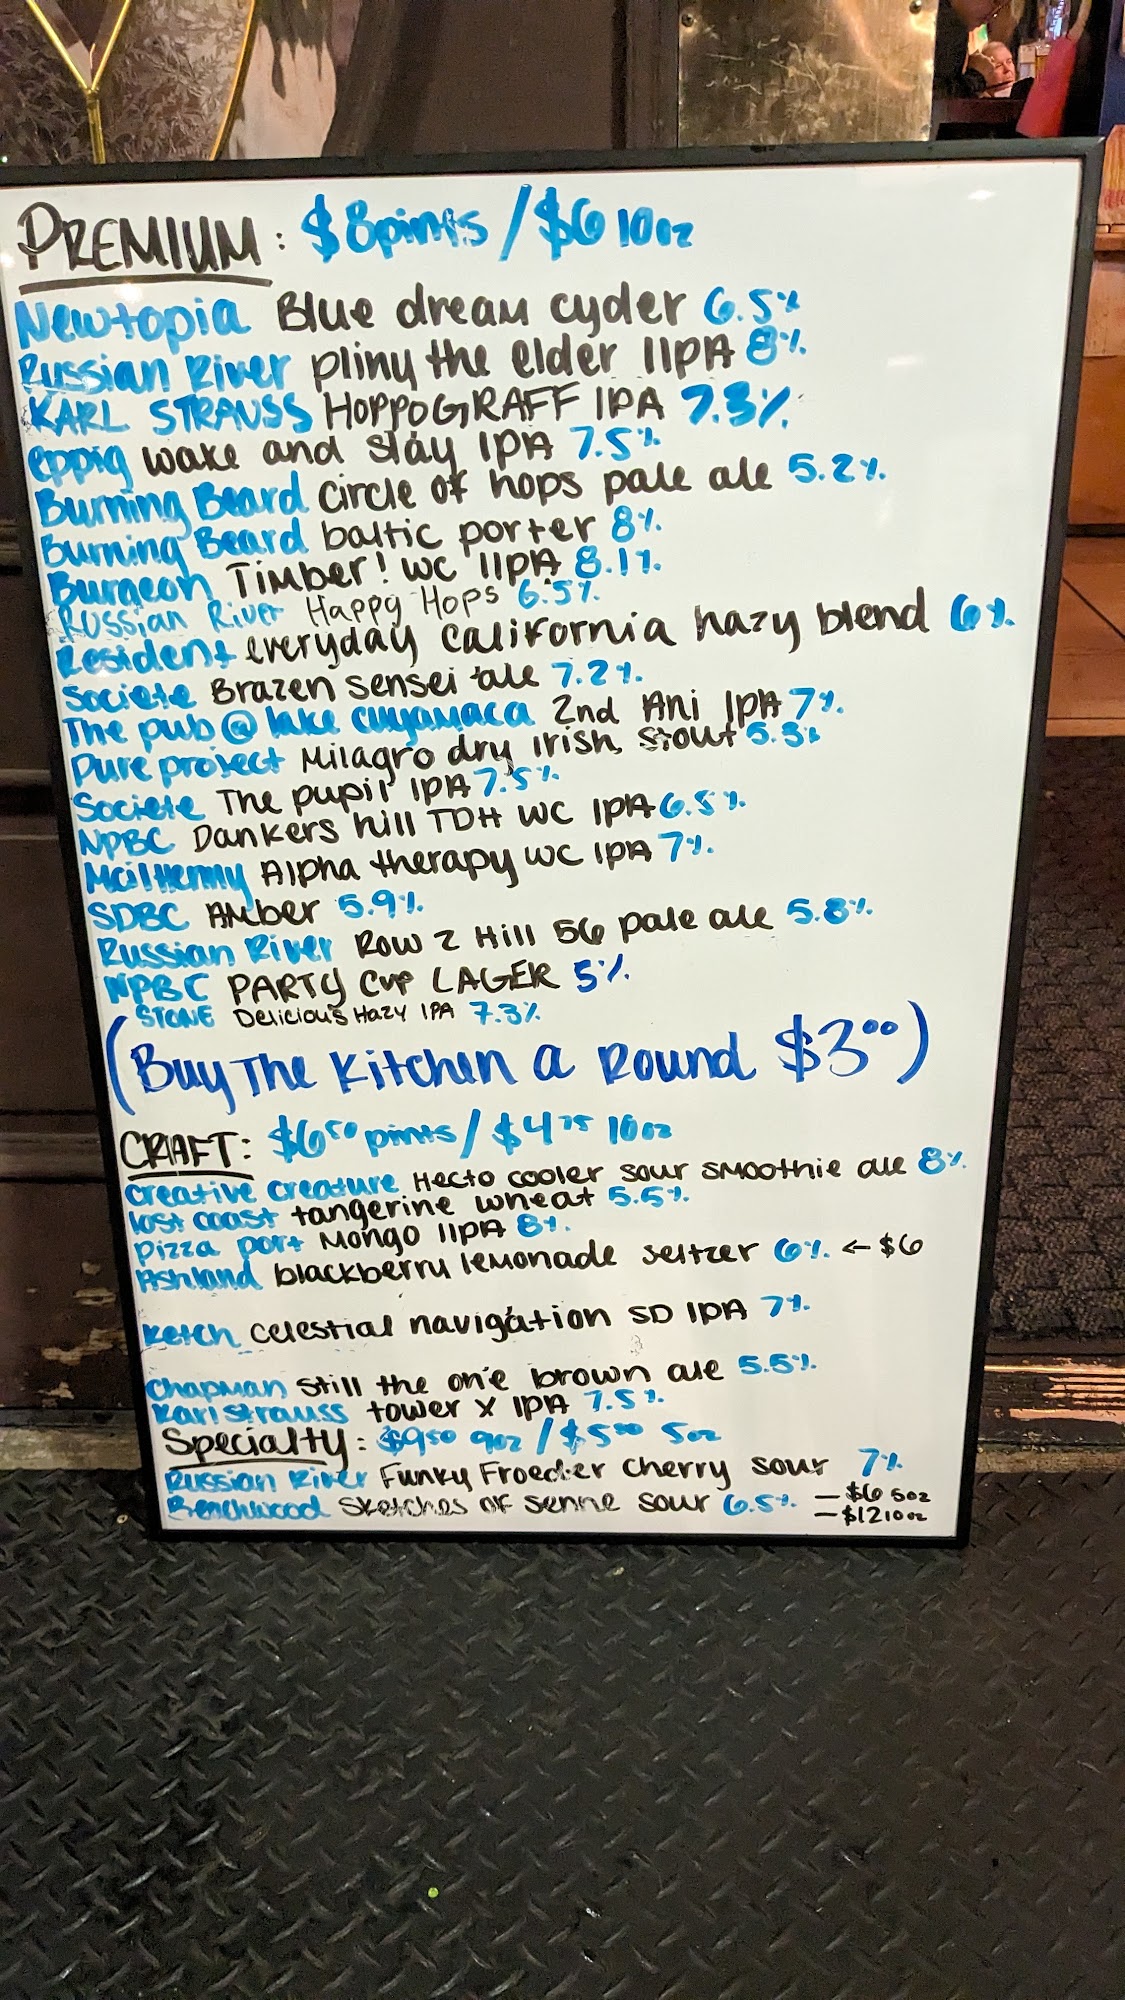 PREMIUM: $8 pints / $6 10oz
Newtopia Blue dream cyder 6.5%
Russian River pliny the elder IIPA 8%
KARL STRAUSS HOPPOGRAFF IPA 7.3%
eppig wake and slay IPA 7.5%
Burning Beard circle of hops pale ale 5.2%
Burning Beard baltic porter 8%
Burgeon Timber! WC IIPA 8.1%
Russian River Happy Hops 6.5%
Resident everyday california hazy blend 6%
Societe Brazen sensei ale 7.2%
The pub @ lake cuyamaca 2nd Ani IPA 7%
Pure project Milagro dry irish stout 5.3%
Societe The pupil IPA 7.5%
NPBC Dankers hill TDH WC IPA 6.5%
Mcilhenny Alpha therapy WC IPA 7%
SDBC AMber 5.9%
Russian River Row 2 Hill 56 pale ale 5.8%
NPBC PARTY CUP LAGER 5%
STONE Delicious Hazy IPA 7.3%
(Buy The Kitchen a Round $3.00)
CRAFT: $6.50 pints / $4.75 10oz
Creative creature Hecto cooler sour smoothie ale 8%
lost coast tangerine wheat 5.5%
Pizza port Mongo IIPA 8%
Ashland blackberry lemonade seltzer 6% ← $6
Ketch celestial navigation SD IPA 7%
Chapman still the one brown ale 5.5%
Karl Strauss tower X IPA 7.5%
Specialty: $9.50 9oz / $5.00 5oz
Russian River Funky Froeder cherry sour 7%
Beachwood sketches of senne sour 6.5% - $6 5oz
- $12 10oz